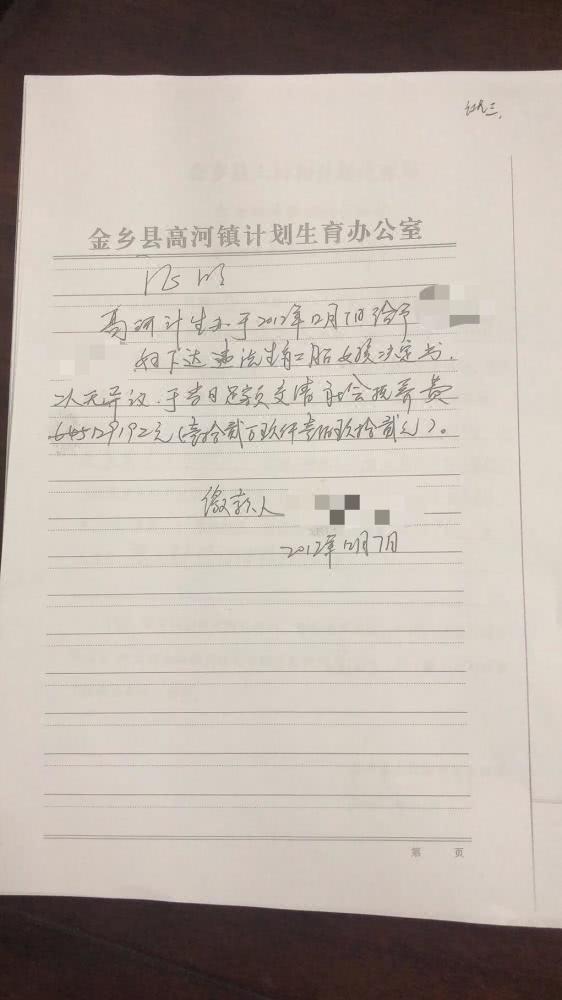 金乡县高河镇计划生育办公室
证明
高河计生办于2012年12月7日给予
妇下达违法生育二胎女孩决定书,
二人无异议.于当日足额交清社会抚养费
129192元(壹拾贰万玖仟壹佰玖拾贰元)。
缴款人
2012年12月7日
第 页